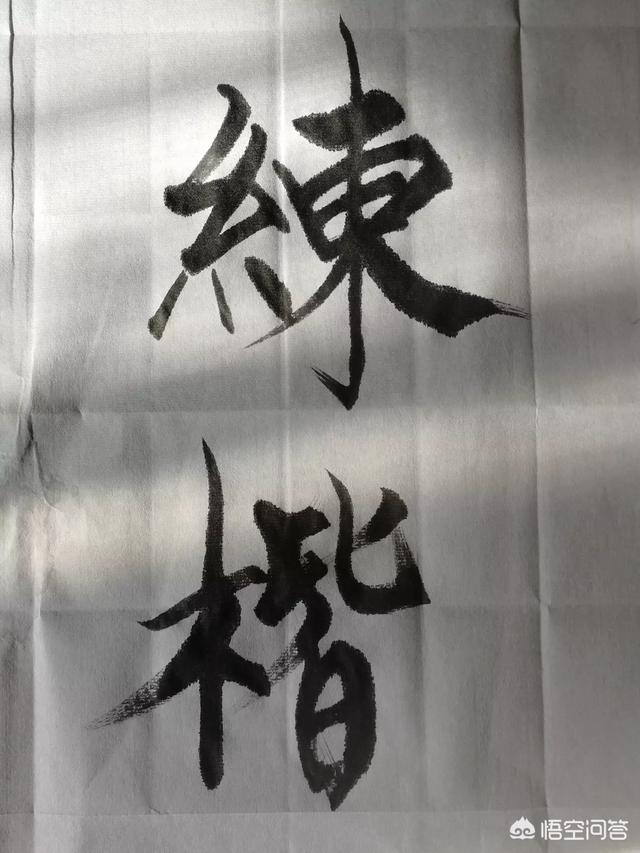 練
楷
悟空问答